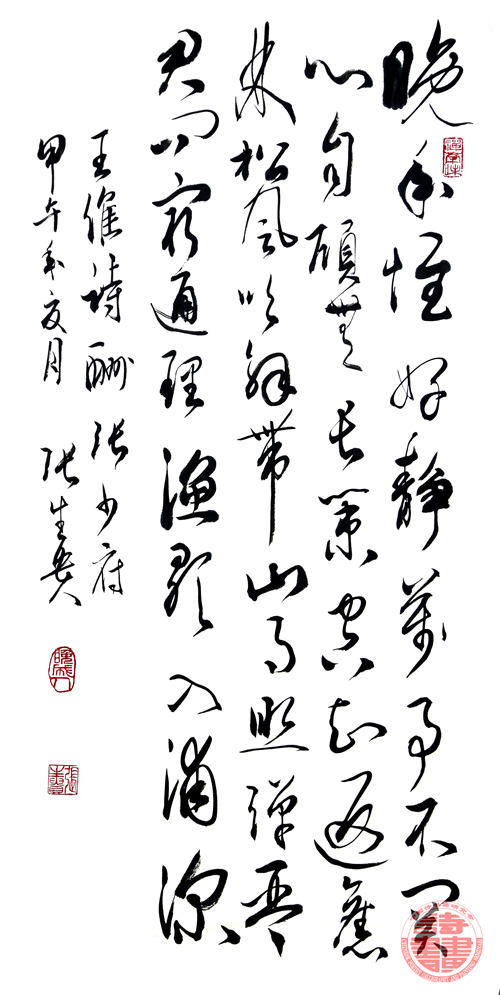 晚年惟好靜萬事不關
心自顧無長策空知返舊
林松風吹解帶山月照彈琴
君問窮通理漁歌入浦深
王維詩酬張少府
甲午年夏月 張生